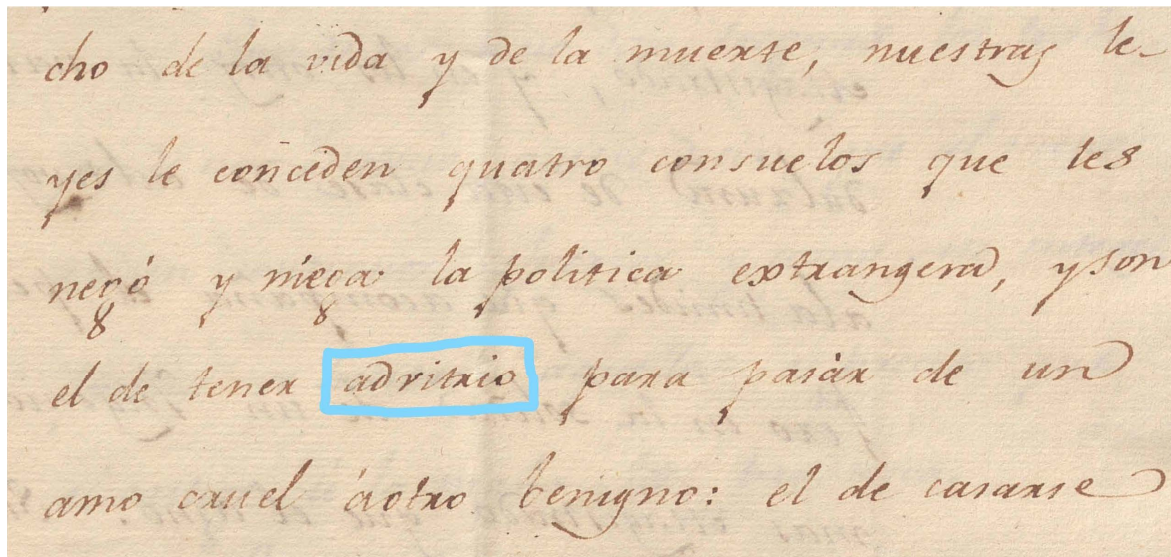 cho de la vida y de la muerte, nuestras le-
yes le conceden quatro consuelos que les
negó y niega la politica extrangera, y son
el de tener adritrio para pasár de un
amo cruel áotro benigno: el de casarse